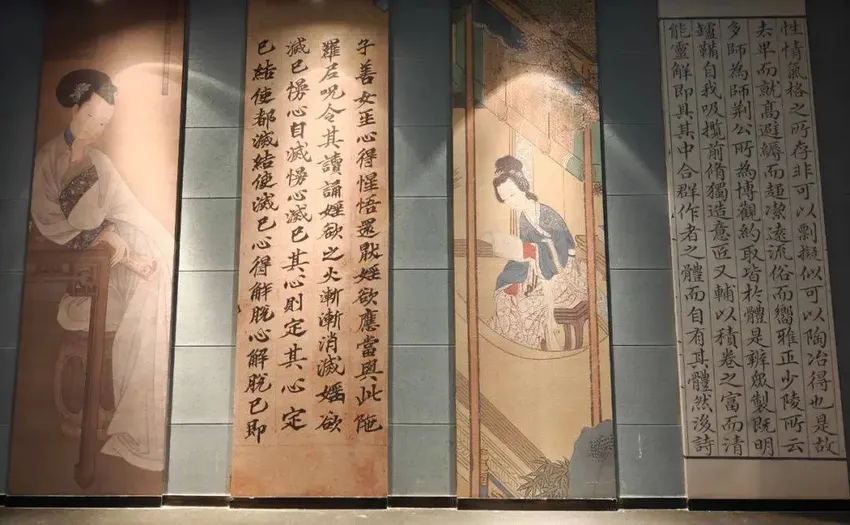 性情氣格之所存非可以剽擬似可以陶冶得也是故
去卑而就高避縟而趨潔遠流俗而嚮雅正少陵所云
多師為師荊公所為博觀約取皆於體是辨眾製既明
鑪鞴自我吸攬前脩獨造意匠又輔以積卷之富而清
能靈解即具其中合群作者之體而自有其體然後詩
子善女至心得惺悟還猒婬欲應當與此陁
羅尼呪令其讀誦婬欲之火漸漸消滅婬欲
滅已憍心自滅憍心滅已其心則定其心定
已結使都滅結使滅已心得解脫心解脫已即